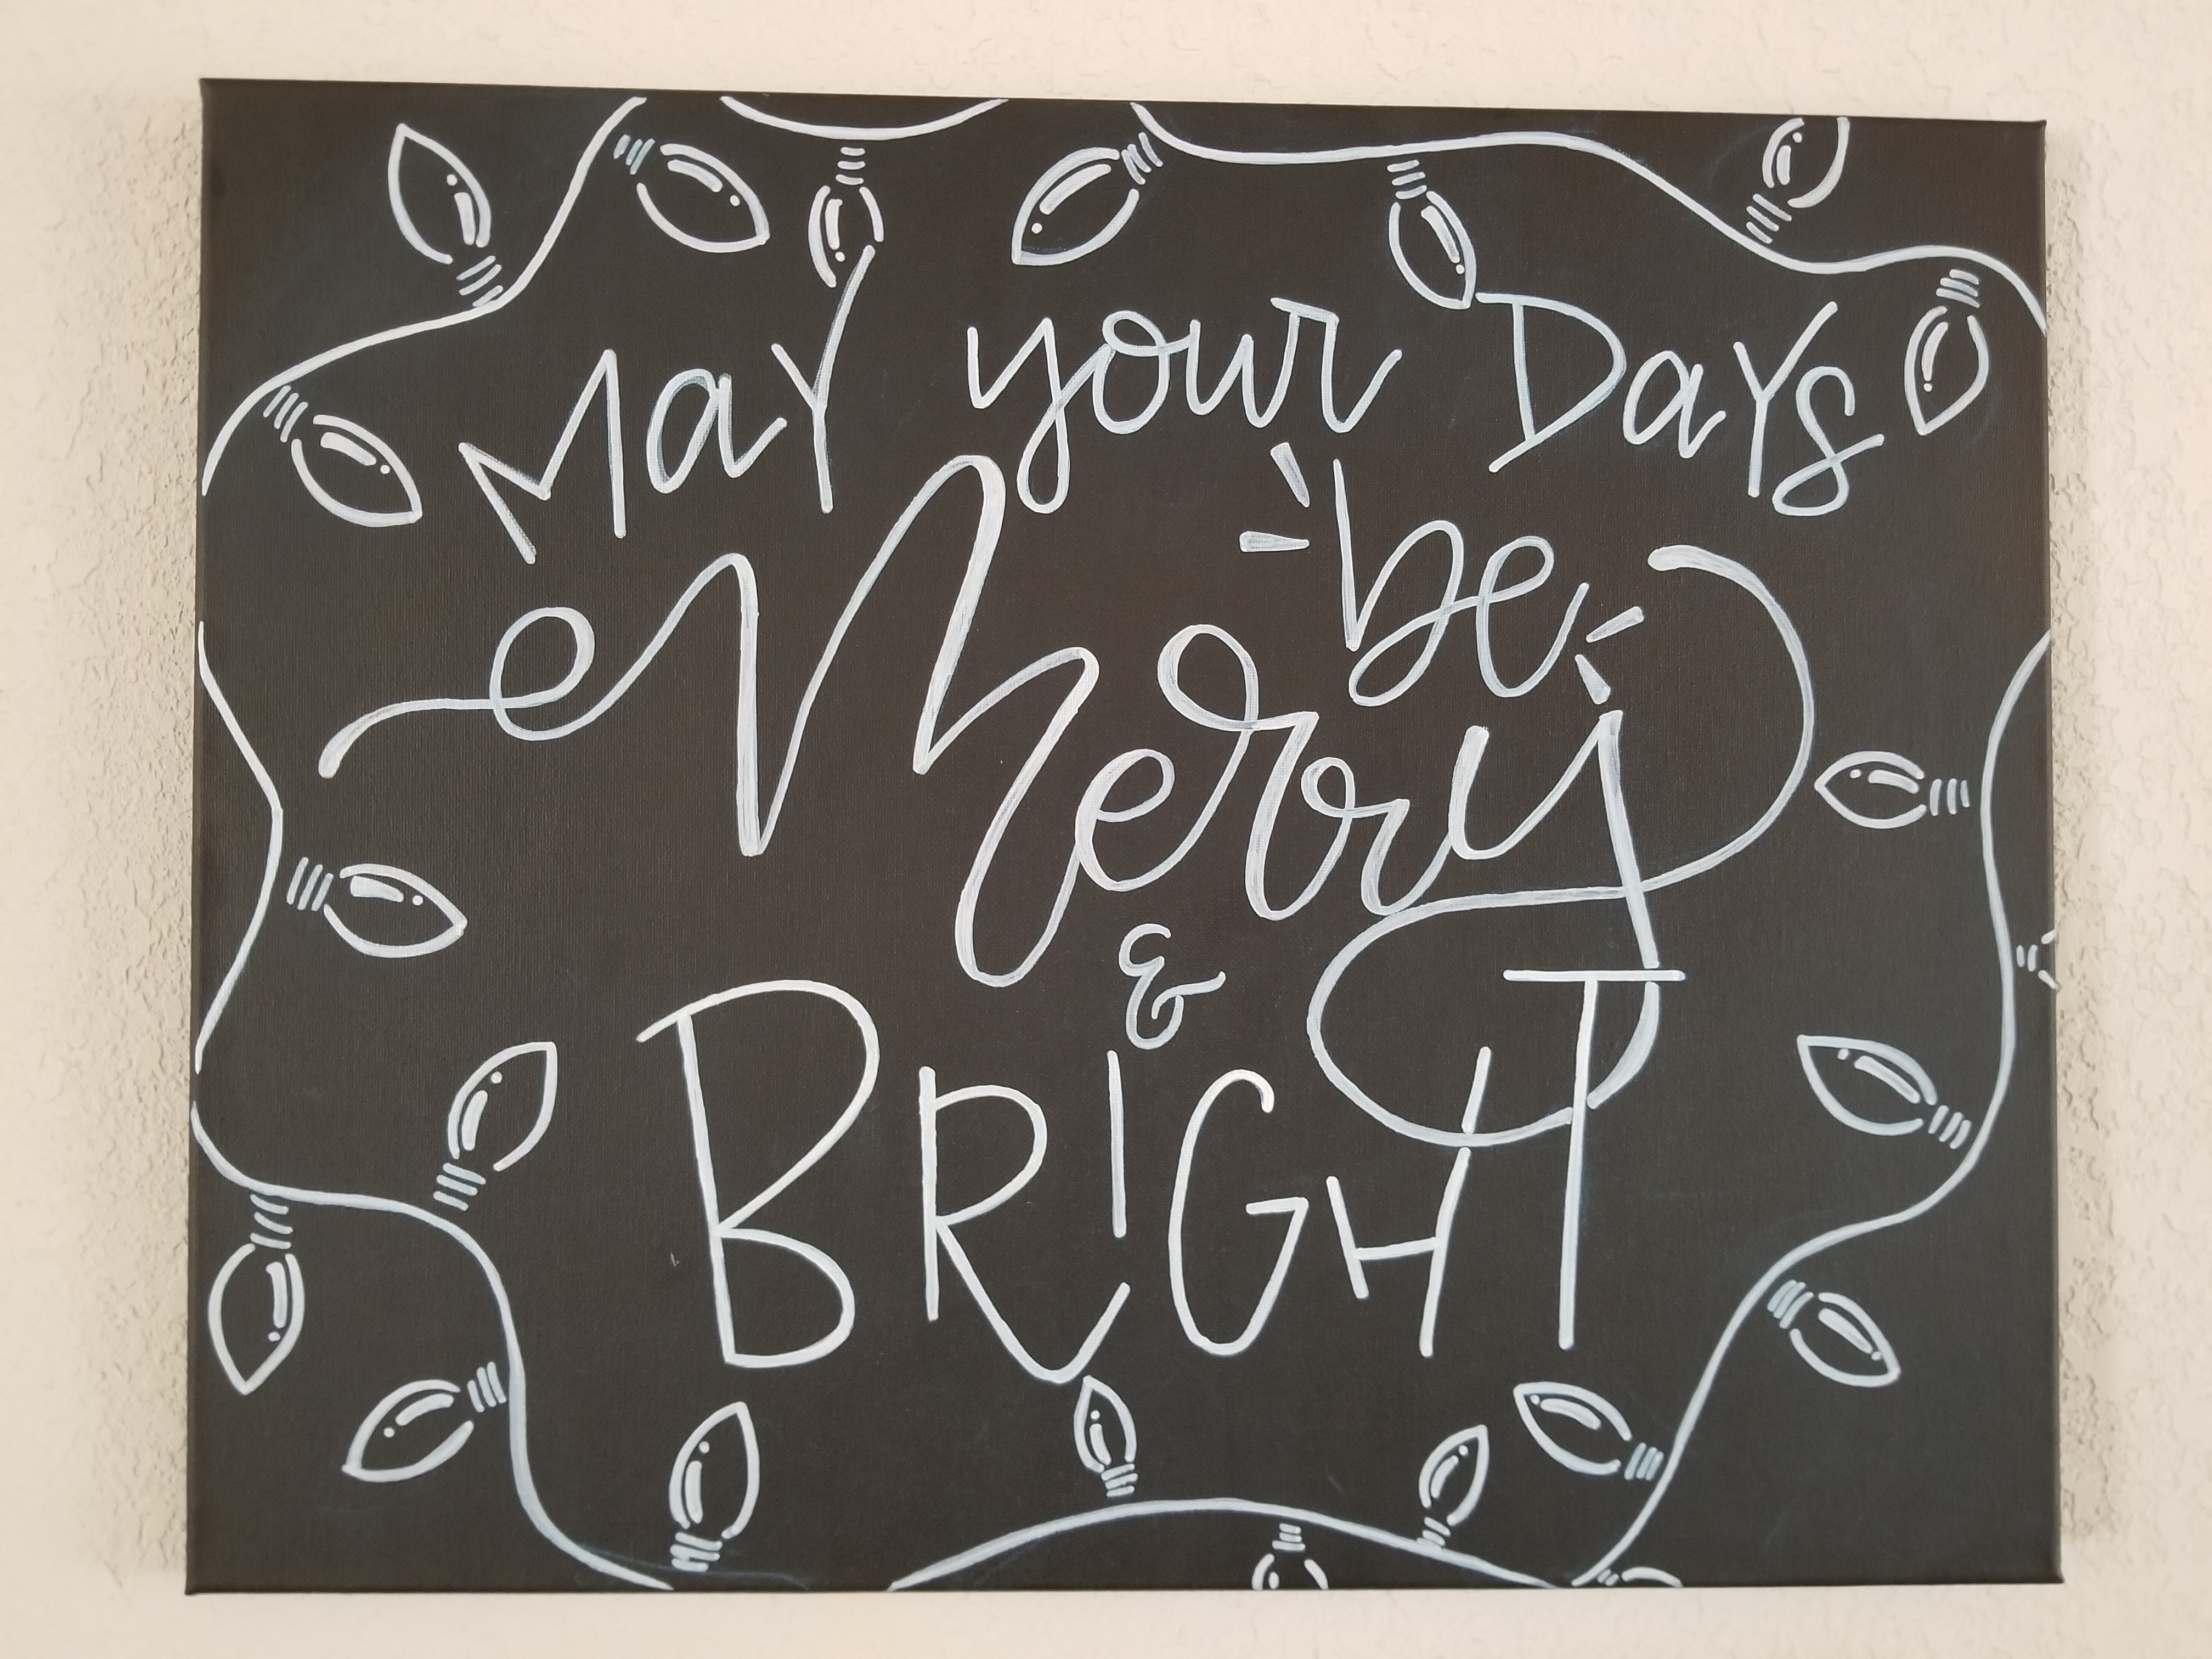 May your Days
be
Merry
&
BRIGHT